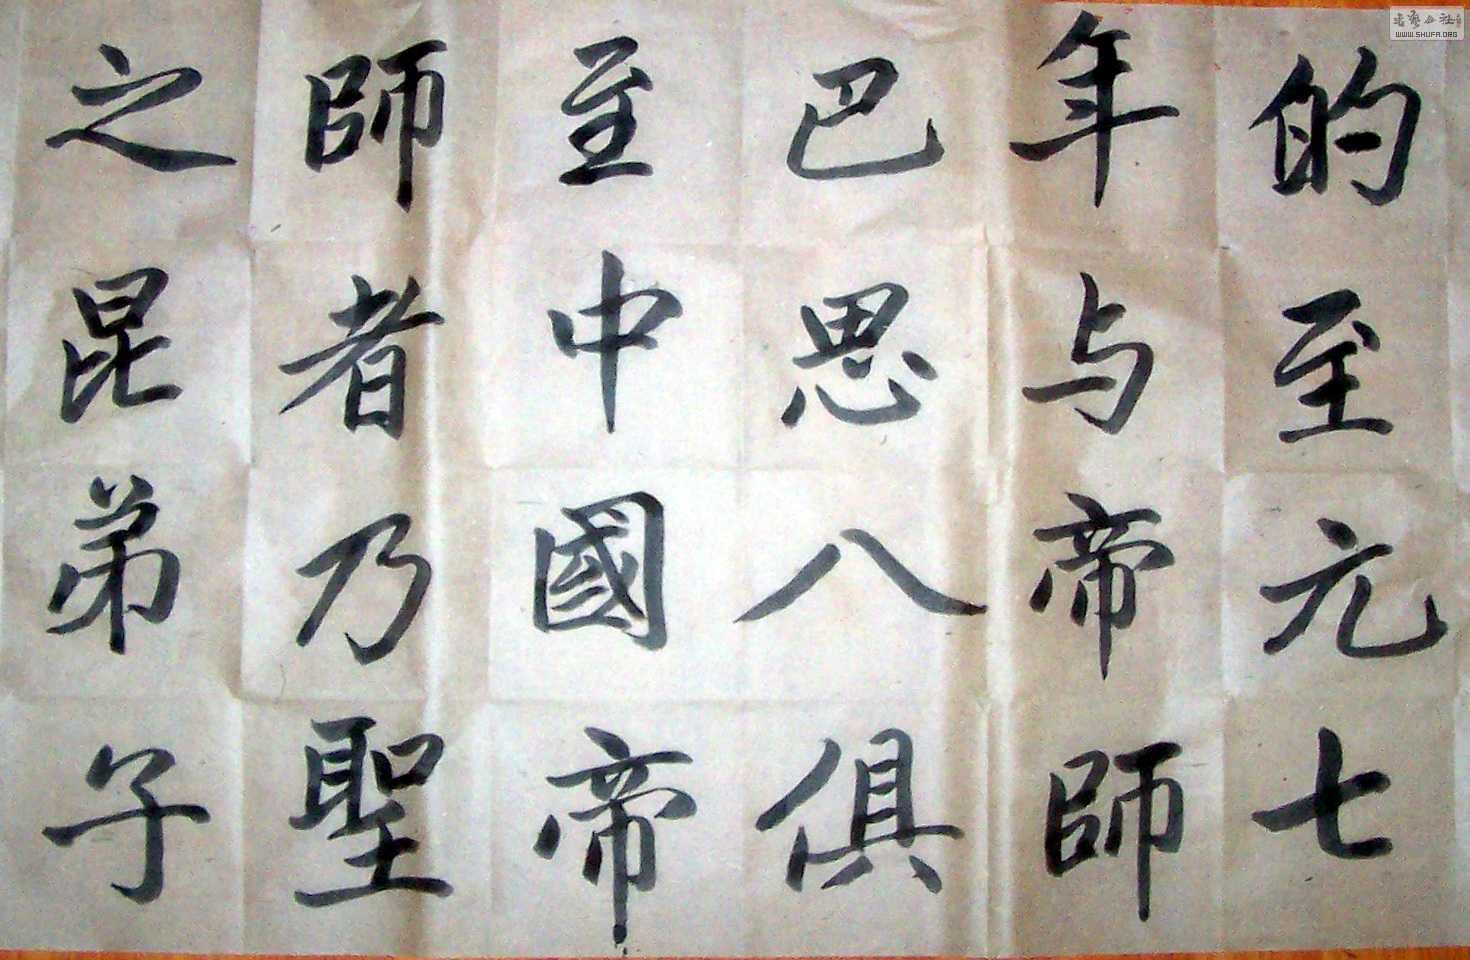 的至元七
年与帝師
巴思八俱
至中國帝
師者乃聖
之昆弟子
書藝公社
WWW.SHUFA.ORG